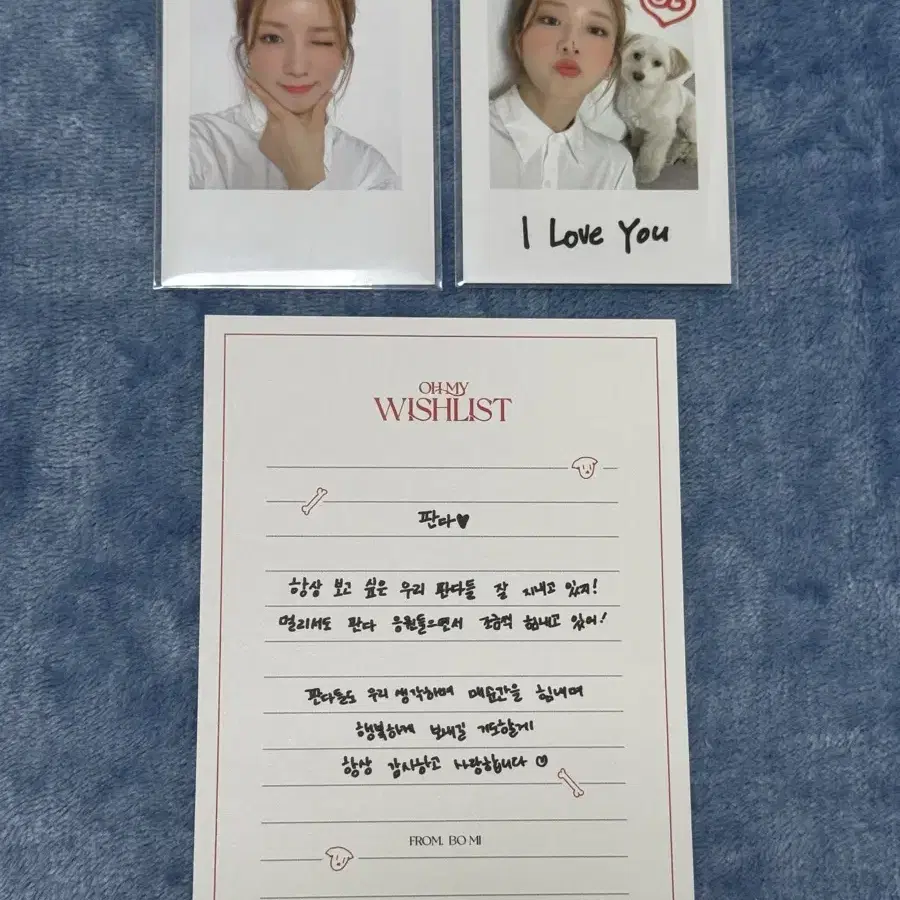 I Love You
OH MY
WISHLIST
판다♥
항상 보고 싶은 우리 판다들 잘 지내고 있지!
멀리서도 판다 응원들으면서 조금씩 힘내고 있어!
판다들도 우리 생각하며 매순간을 힘내며
행복하게 보내길 기도할게
항상 감사하고 사랑합니다♡
FROM. BO MI